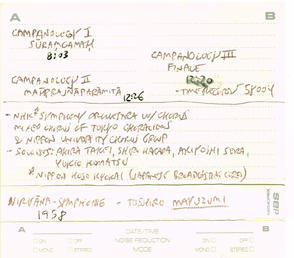 A B
CAMPANOLOGY I
SŪRAṂGAMAḤ
8:03
CAMPANOLOGY III
FINALE
12:20
CAMPANOLOGY II
MAHĀPRAJÑĀPĀRAMITĀ
12:26
- NHK* SYMPHONY ORCHESTRA W/ CHORUS
MIXED CHORUS OF TOKYO CHORALIONS
& NIPPON UNIVERSITY CHORUS GROUP
- SOLOISTS: AKIRA
YUKIO KOMATSU
* NIPPON HOSO KYOKAI (JAPANESE BROADCASTING CORP.)
NIRVANA-SYMPHONIE - TOSHIRO MAYUZUMI
1958
A DATE/TIME B
ON OFF NOISE REDUCTION ON OFF
MONO STEREO MODE MONO STEREO